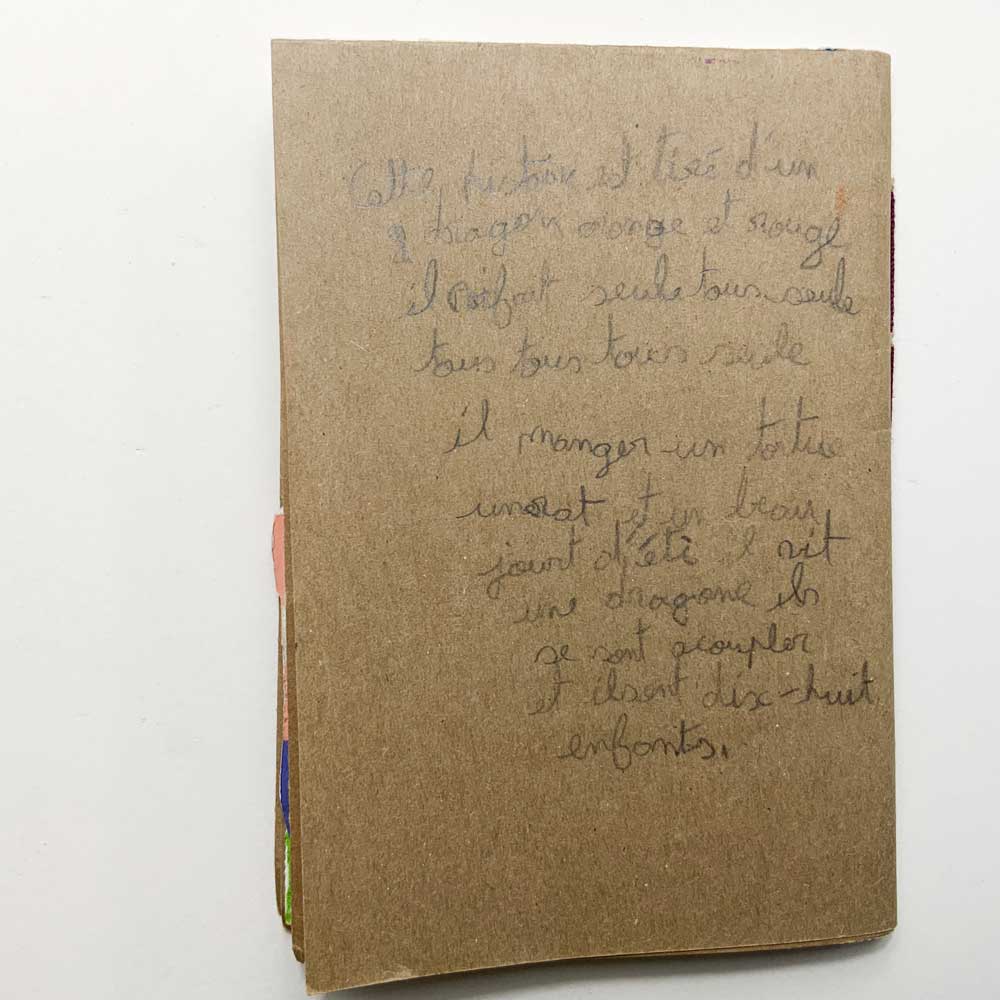 Cette histoire est tiré d'un
dragon orange et rouge
il seule tous seule
tous tous tous seule
il manger un tortue
un rat et un beau
jourt d'été il vit
une dragone ils
se sont acoupler
et ilsont dix-huit
enfants.